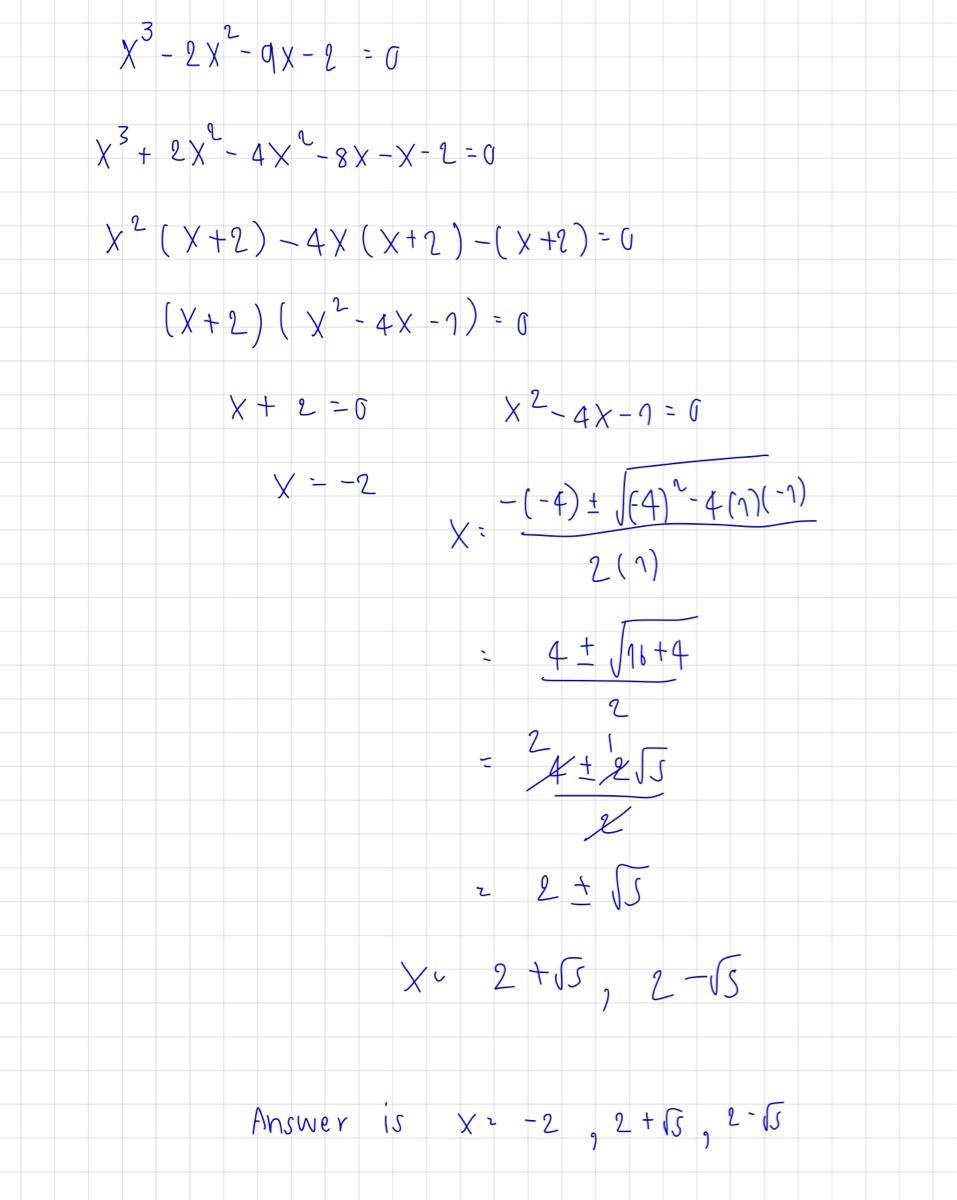 x³ - 2x² - 9x - 2 = 0
x³ + 2x² - 4x² - 8x - x - 2 = 0
x² (x+2) - 4x (x+2) - (x+2) = 0
(x+2) (x² - 4x - 1) = 0
x + 2 = 0    x² - 4x - 1 = 0
x = -2
x = (-(-4) ± √((-4)² - 4(1)(-1))) / 2(1)
= (4 ± √(16+4)) / 2
= (4 ± 2√5) / 2    2    1
= 2 ± √5
x = 2 + √5 , 2 - √5
Answer is x = -2 , 2 + √5 , 2 - √5